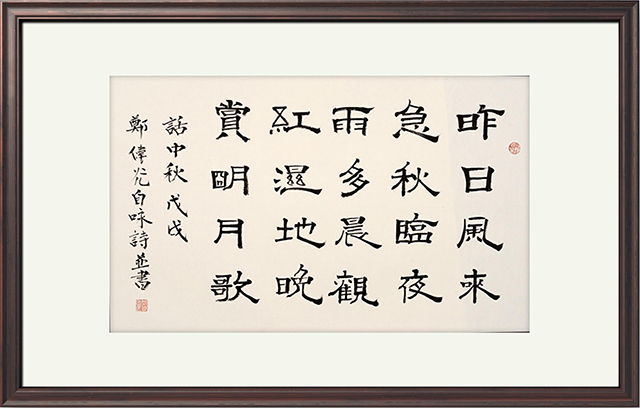 昨日風來
急秋臨夜
雨多晨觀
紅濕地晚
賞明月歌
話中秋 戊戌
鄭偉光自咏詩並書